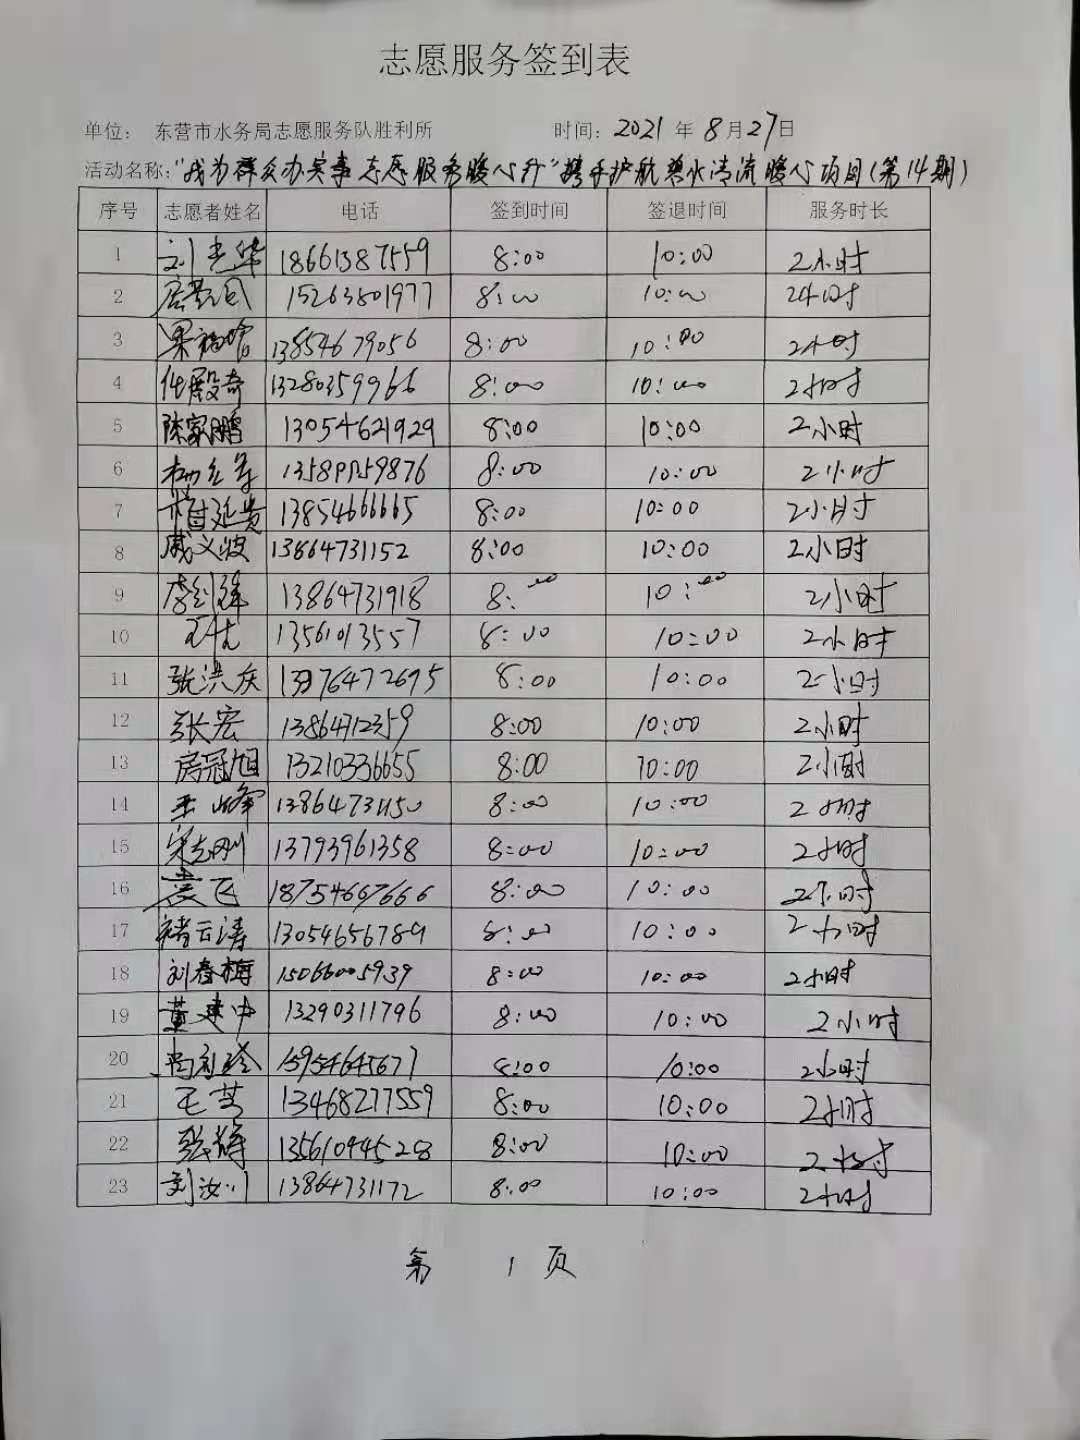 志愿服务签到表
单位： 东营市水务局志愿服务队胜利所 时间：2021 年 8 月 27 日
活动名称："我为群众办实事志愿服务暖心升"携手护航碧水清流暖心项目(第14期)
序号 志愿者姓名 电话 签到时间 签退时间 服务时长
1 刘光华 18661387559 8:00 10:00 2小时
2 15263801977 8:00 10:00 2小时
3 13854679056 8:00 10:00 2小时
4 13280359966 8:00 10:00 2小时
5 陈家鹏 13054621929 8:00 10:00 2小时
6 8:00 10:00 2小时
7 13854666665 8:00 10:00 2小时
8 13864731152 8:00 10:00 2小时
9 13864731918 8:00 10:00 2小时
10 13561013557 8:00 10:00 2小时
11 张洪庆 8:00 10:00 2小时
12 张宏 13864712359 8:00 10:00 2小时
13 房冠旭 13210336655 8:00 10:00 2小时
14 王峰 13864731150 8:00 10:00 2小时
15 宋志刚 13793961358 8:00 10:00 2小时
16 18754667666 8:00 10:00 2小时
17 褚云涛 13054656789 8:00 10:00 2小时
18 刘春梅 15066005939 8:00 10:00 2小时
19 董建中 13290311796 8:00 10:00 2小时
20 15954645677 8:00 10:00 2小时
21 13468277559 8:00 10:00 2小时
22 张辉 13561094528 8:00 10:00 2小时
23 刘汝川 13864731172 8:00 10:00 2小时
第 1 页